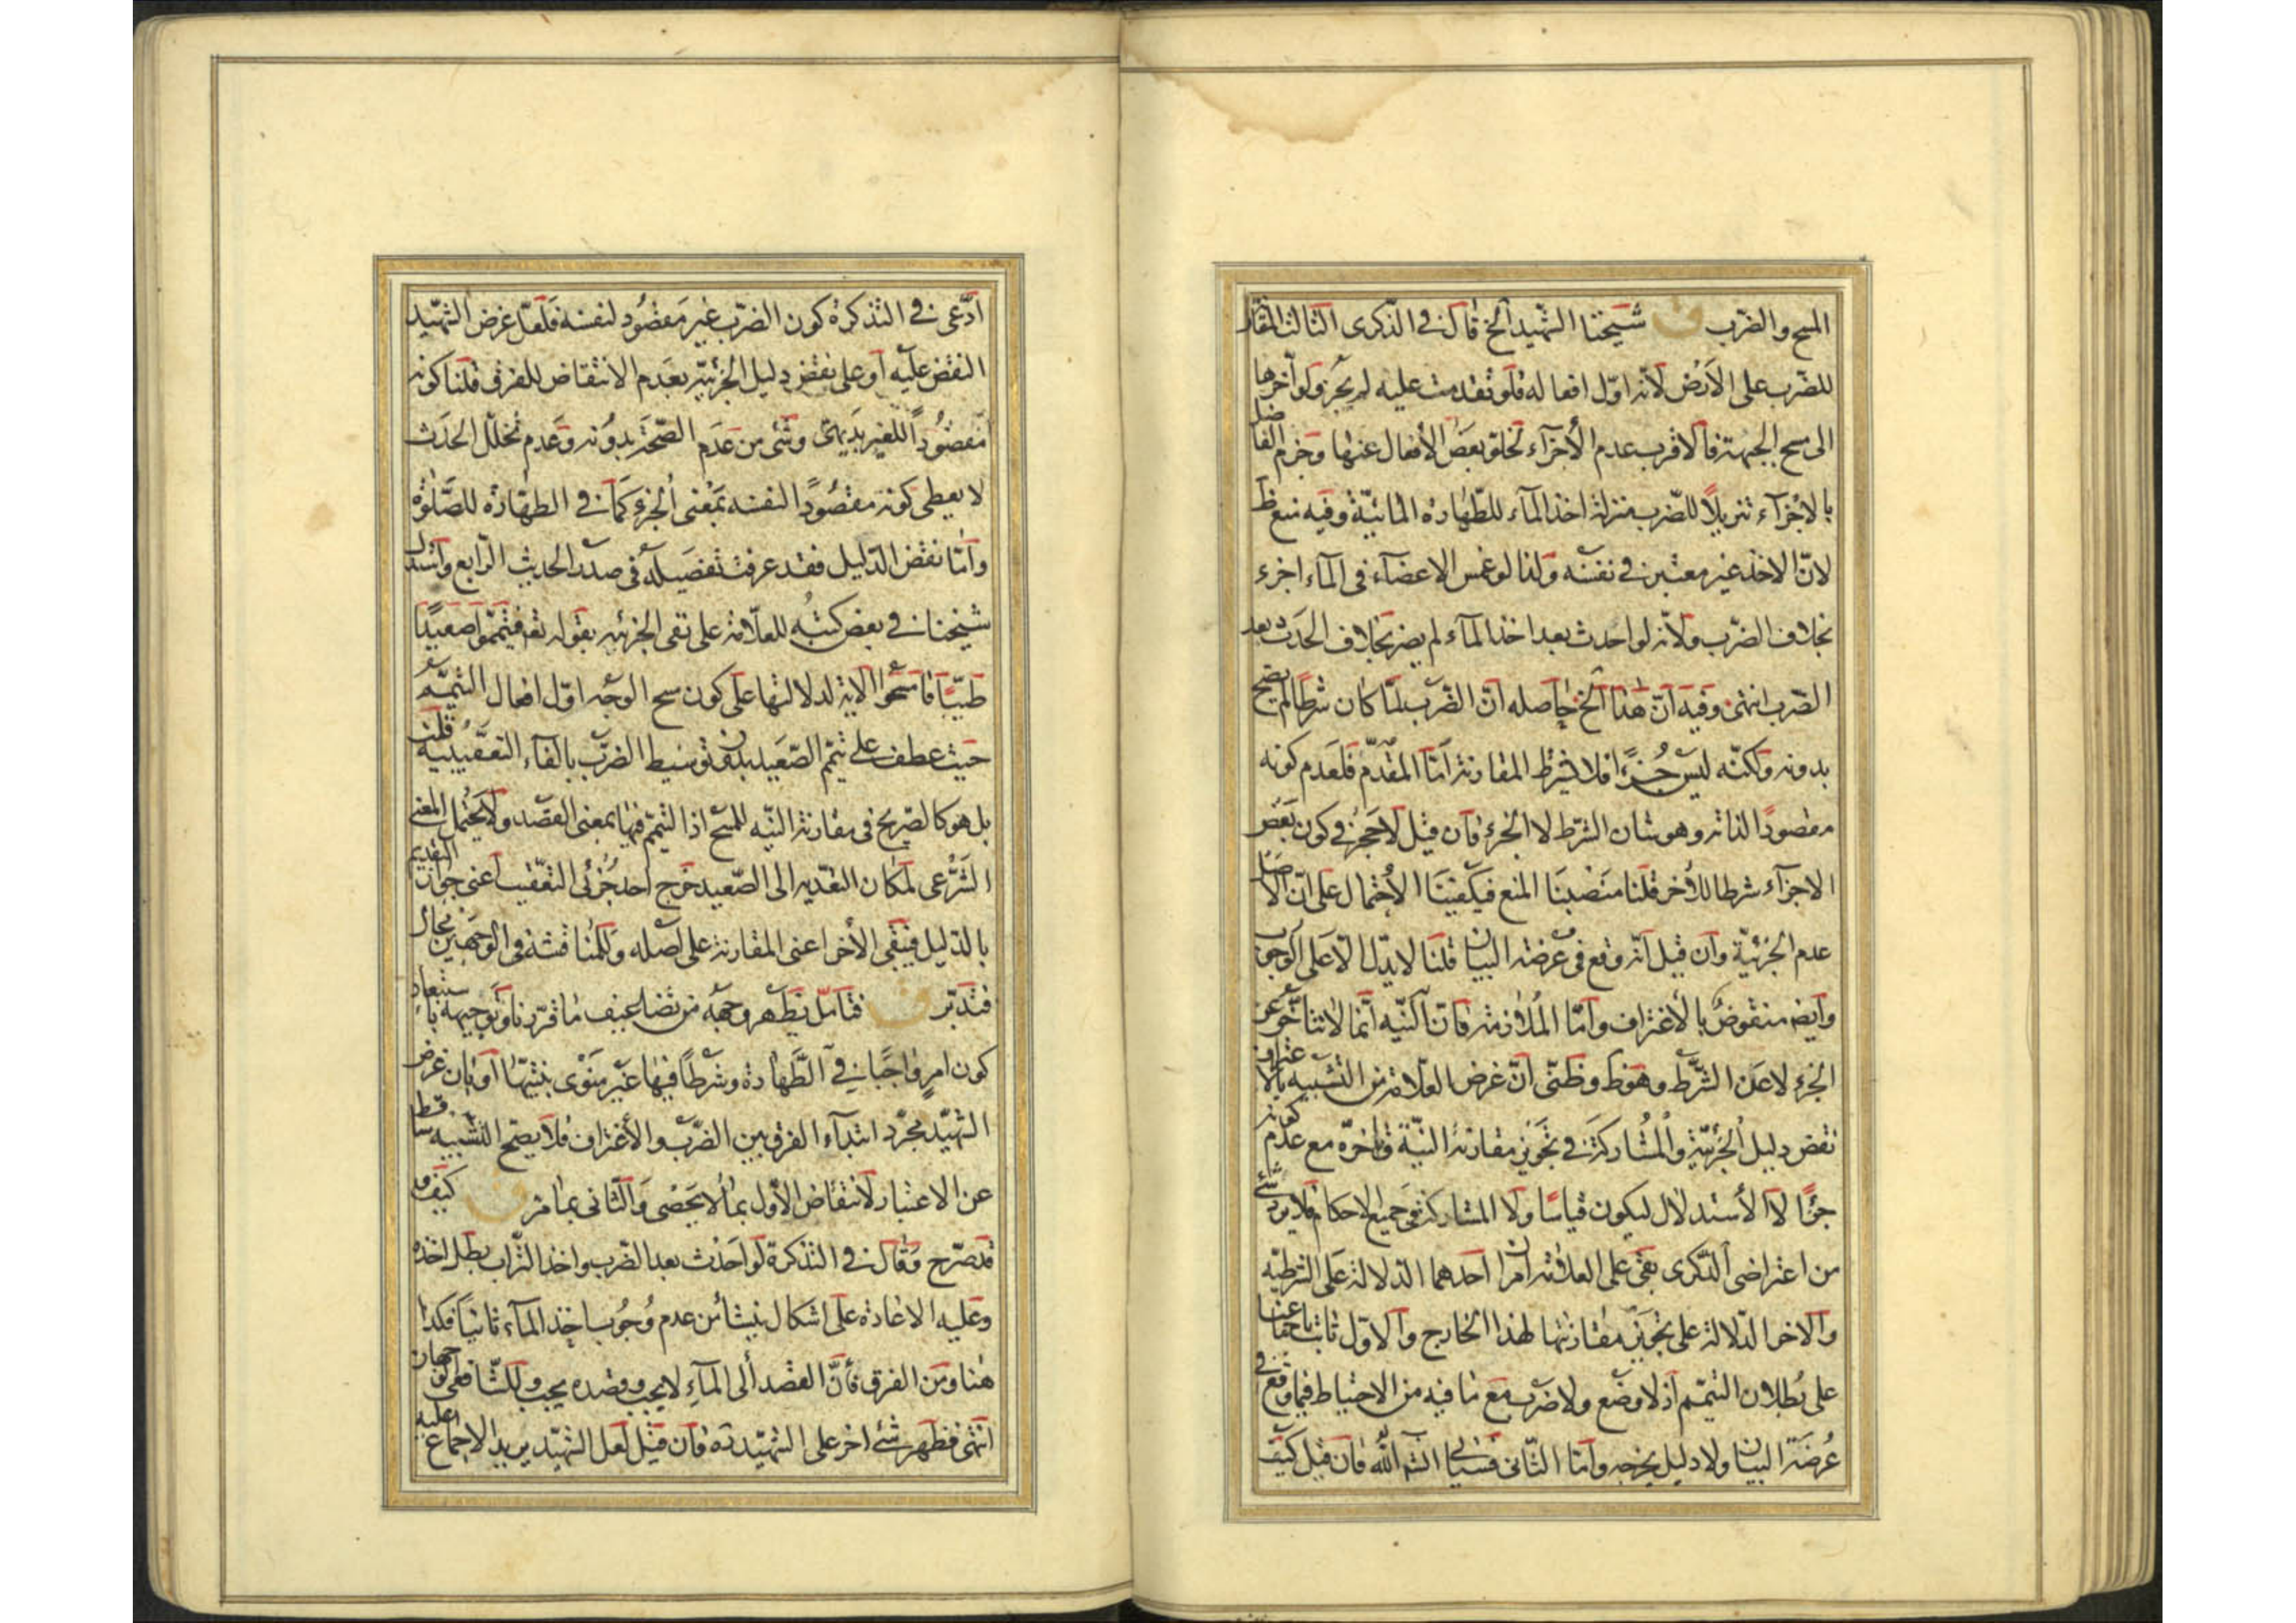 المسح والضرب ق شيخنا الشهيد الخ قال في الذكرى الثالث المقار
للضرب على الأرض لأنه اول افعاله فلو تقدمت عليه لم يجز ولو آخرها
الى مسح الجبهة فالاقرب عدم الأجزاء لخلو بعض الأفعال عنها وجزم الفاضل
بالاجزاء تنزيلاً للضرب منزلة اخذ الماء للطهارة المائية وفيه منع ظ
لانّ الاخذ غير معتبر في نفسه ولذا لو غمس الاعضاء في الماء اجزء
بخلاف الضرب ولأنه لو احدث بعد اخذ الماء لم يضر بخلاف الحدث بعد
الضرب انتهى وفيه انّ هذا الخ حاصله انّ الضرب لمّا كان شرطا لم يصح
بدونه ولكنّه ليس جزءً فلا يشترط المقارنة امّا المقدّم فلعدم كونه
مقصودًا لذاته وهو شان الشرط لا الجزء فان قيل لا حجر في كون بعض
الاجزاء شرطا للاخر قلنا منصبنا المنع فيكفينا الأحتمال على انّ الاصل
عدم الجزئيّة وان قيل انّه وقع في عرضة البيان قلنا لا يدلّ الّا على الوجوب
وايضا منقوض بالأغتراف وامّا الملازمة فانّ النيّة انّما لا تتأخّر عن
الجزء لا عن الشرط وهو ظ وظنّى انّ غرض العلّامة من التشبيه بالاغتراف
نقض دليل الجزئيّة والمشاركة في تجويز مقارنة النيّة وتاخره مع عدم كونه
جزءًا لا الأستدلال ليكون قياسًا ولا المشاركة في جميع الاحكام فلا يرد شئ
من اعتراضى الذكرى بقى على العلامة امران احدهما الدلالة على الشرطيّة
والاخر الدلالة على تجويز مقارنتها لهذا الخارج والاول ثابت باجماعنا
على بطلان التيمّم اذ لا وضع ولا ضرب مع ما فيه من الاحتياط فيما وقع في
عُرضة البيان ولا دليل يخرجه وامّا الثانى فسيأتى انشاء الله فان قيل كيف
ادّعى في التذكرة كون الضرب غير مقصُود لنفسه فلعلّ غرض الشهيد
النقض عليه او على نقض دليل الجزئيّه بعدم الانتقاض للفرق قلنا كونه
مقصُودًا للغير بديهىّ وشئ من عدم الصّحة بدونه وعدم تخلّل الحدث
لا يعطى كونه مقصُودًا لنفسه بمعنى الجزء كما في الطهارة للصّلوة
وامّا نقض الدّليل فقد عرفت تفصيله في صدر الحديث الرابع واستدل
شيخنا في بعض كتبه للعلّامة على نفى الجزئيه بقوله تع فتيمّموا صعيدًا
طيّبًا فامسحوا الاية لدلالتها على كون مسح الوجه اوّل افعال التيمّم
حيث عطف على تيمّم الصّعيد بدون توسيط الضرب بالفاء التعقيبية قلت
بل هو كالصّريح في مقارنة النيّه للمسح اذ التيمّم فيها بمعنى القصد ولا يحتمل المعنى
الشرعى لمكان التعديه الى الصّعيد خرج احد جُزئى التعقيب اعنى جواز التقديم
بالدّليل فيبقى الأخر اعنى المقارنة على اصله وللمناقشة في الوجهين مجال
فتدبّر ق فتامّل يظهر وجهه من تضاعيف ما قرّرنا وتوجيهه باستبعاد
كون امر واجبا في الطّهارة وشرطاً فيها غير منوى بنيتها او بان غرض
الشهيد مجرّد ابتداء الفرق بين الضرب والأغتراف فلا يصحّ التشبيه ساقط
عن الاعتبار لانتقاض الأول بما لا يحصى والثانى بما مرّ ق كيف و
قد صرّح وقال في التذكرة لو احدث بعد الضرب واخذ التراب بطل اخذه
وعليه الاعادة على اشكال ينشأ من عدم وُجُوب اخذ الماء ثانياً فكذا
هنا ومن الفرق فأنّ القصد الى الماء لا يجب وقصده يجب وللشّافعى وجهان
انتهى فظهر شئ اخر على الشهيد ره فان قيل لعل الشهيد يريد الاجماع عليه